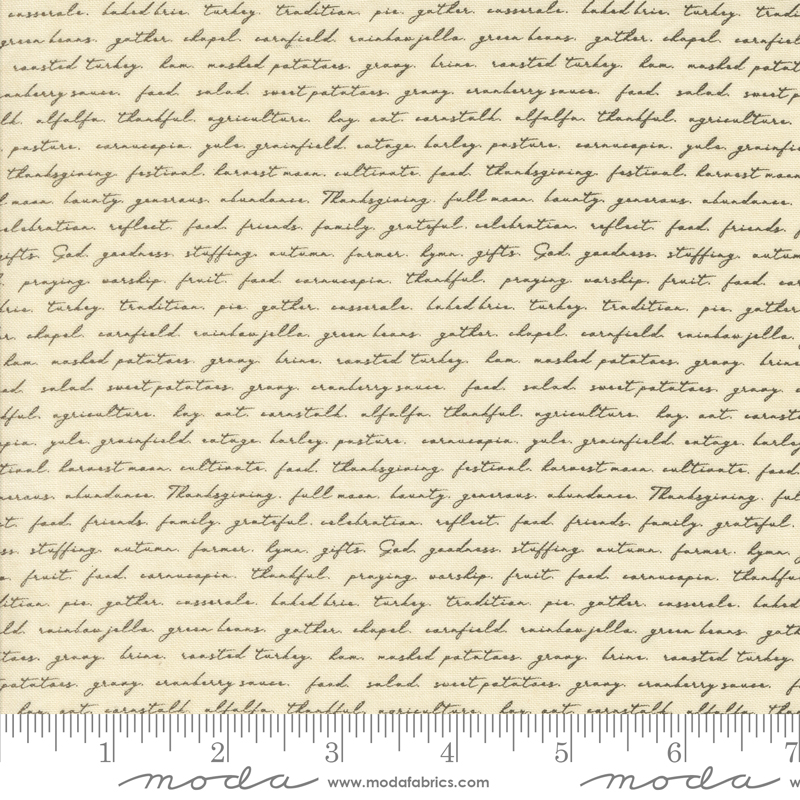 casserole. baked brie. turkey. tradition. pie. gather. casserole. baked brie. turkey.
green beans. gather. chapel. cornfield. rainbow jello. green beans. gather. chapel.
roasted turkey. ham. mashed potatoes. gravy. brine. roasted turkey. ham. mashed
cranberry sauce. food. salad. sweet potatoes. gravy. cranberry sauce. food. salad. sweet
alfalfa. thankful. agriculture. hay. oat. cornstalk. alfalfa. thankful. agriculture.
pasture. cornucopia. yule. grainfield. cotage. barley. pasture. cornucopia. yule.
thanksgiving. festival. harvest moon. cultivate. food. thanksgiving. festival. harvest moon.
moon. bounty. generous. abundance. Thanksgiving. full moon. bounty. generous. abundance.
celebration. reflect. food. friends. family. grateful. celebration. reflect. food. friends.
gifts. God. goodness. stuffing. autumn. farmer. hymn. gifts. God. goodness. stuffing.
praying. worship. fruit. food. cornucopia. thankful. praying. worship. fruit. food.
turkey. tradition. pie. gather. casserole. baked brie. turkey. tradition. pie. gather.
chapel. cornfield. rainbow jello. green beans. gather. chapel. cornfield. rainbow jello.
ham. mashed potatoes. gravy. brine. roasted turkey. ham. mashed potatoes. gravy. brine.
salad. sweet potatoes. gravy. cranberry sauce. food. salad. sweet potatoes. gravy.
agriculture. hay. oat. cornstalk. alfalfa. thankful. agriculture. hay. oat.
yule. grainfield. cotage. barley. pasture. cornucopia. yule. grainfield. cotage. barley.
harvest moon. cultivate. food. thanksgiving. festival. harvest moon. cultivate. food.
abundance. Thanksgiving. full moon. bounty. generous. abundance. Thanksgiving.
food. friends. family. grateful. celebration. reflect. food. friends. family. grateful.
stuffing. autumn. farmer. hymn. gifts. God. goodness. stuffing. autumn. farmer. hymn.
fruit. food. cornucopia. thankful. praying. worship. fruit. food. cornucopia.
pie. gather. casserole. baked brie. turkey. tradition. pie. gather. casserole. baked
rainbow jello. green beans. gather. chapel. cornfield. rainbow jello. green beans.
gravy. brine. roasted turkey. ham. mashed potatoes. gravy. brine. roasted turkey.
potatoes. gravy. cranberry sauce. food. salad. sweet potatoes. gravy. cranberry sauce.
hay. oat. cornstalk. alfalfa. thankful. agriculture. hay. oat. cornstalk. alfalfa.
1 2 3 4 5 6 7
moda www.modafabrics.com moda